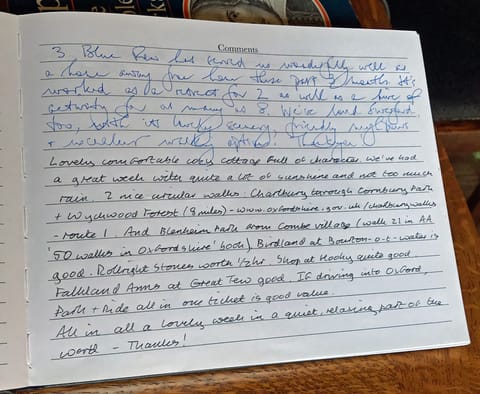 Comments
3 Blue Row has served us wonderfully well as
a home away from home these past 3 months. It's
worked as a retreat for 2 as well as a hive of
activity for as many as 8. We've loved
too, with its lovely scenery, friendly neighbours
+ excellent walking options! Thank you
Lovely comfortable cosy cottage full of character. We've had
a great week with quite a lot of sunshine and not too much
rain. 2 nice circular walks: Charlbury through Cornbury Park
+ Wychwood Forest (9 miles) - www.oxfordshire.gov.uk/charlburywalks
- route 1. And Blenheim Park from Combe village (walk 21 in AA
'50 walks in Oxfordshire' book), Birdland at Bourton-o-t-water is
good. Rollright Stones worth 1/2 hr. Shop at Hooky quite good.
Falkland Arms at Great Tew good. If driving into Oxford,
Park + Ride all in one ticket is good value.
All in all a lovely week in a quiet, relaxing part of the
world - Thanks!